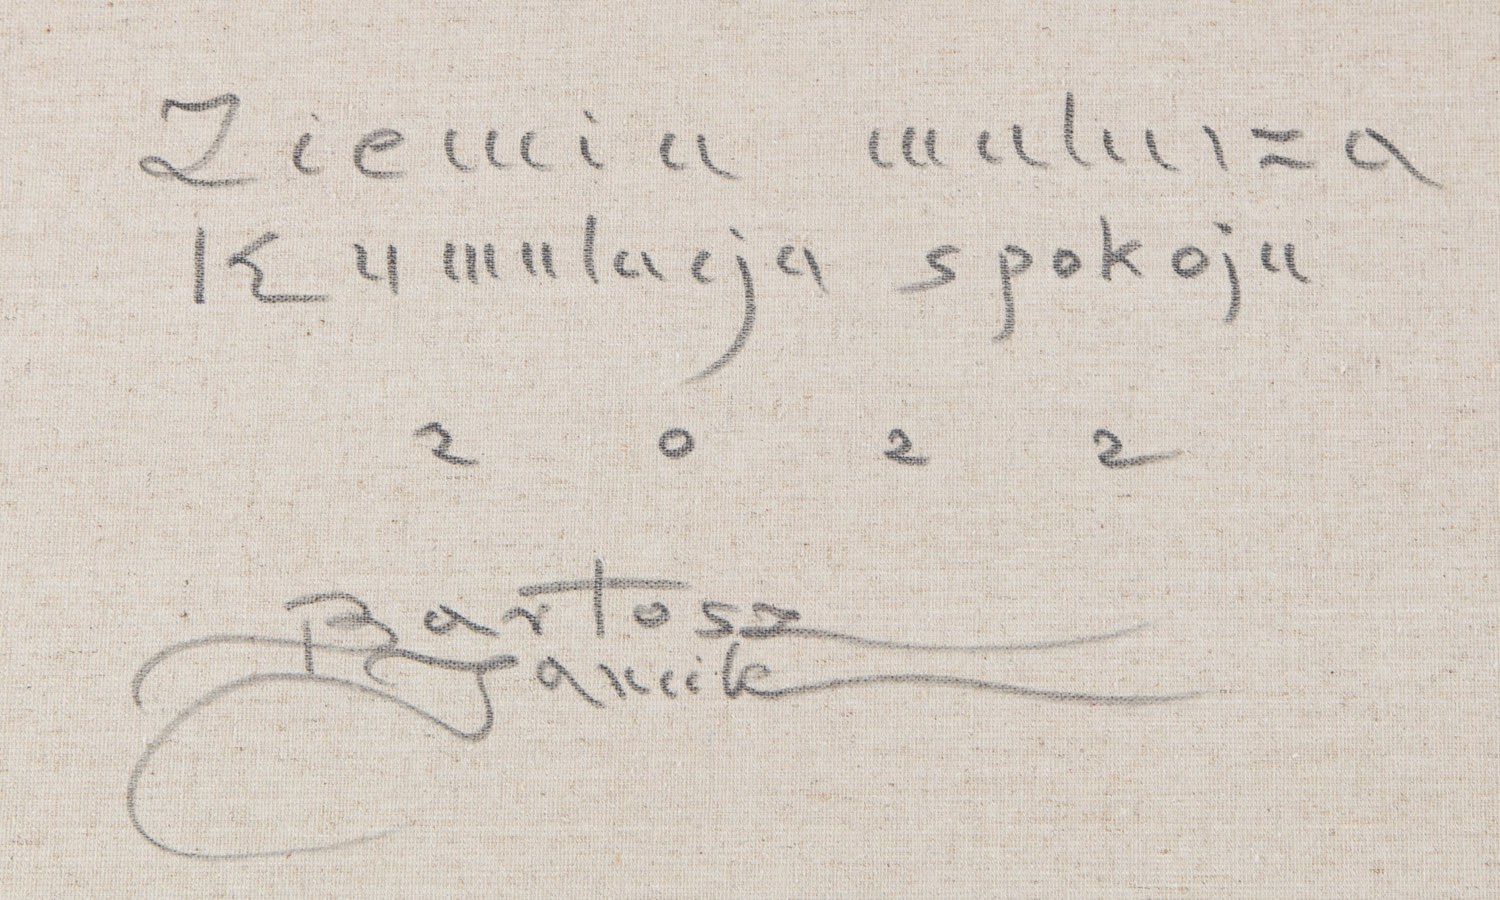 Ziemia malarza
Kumulacja spokoju
2022
Bartosz
Jancik